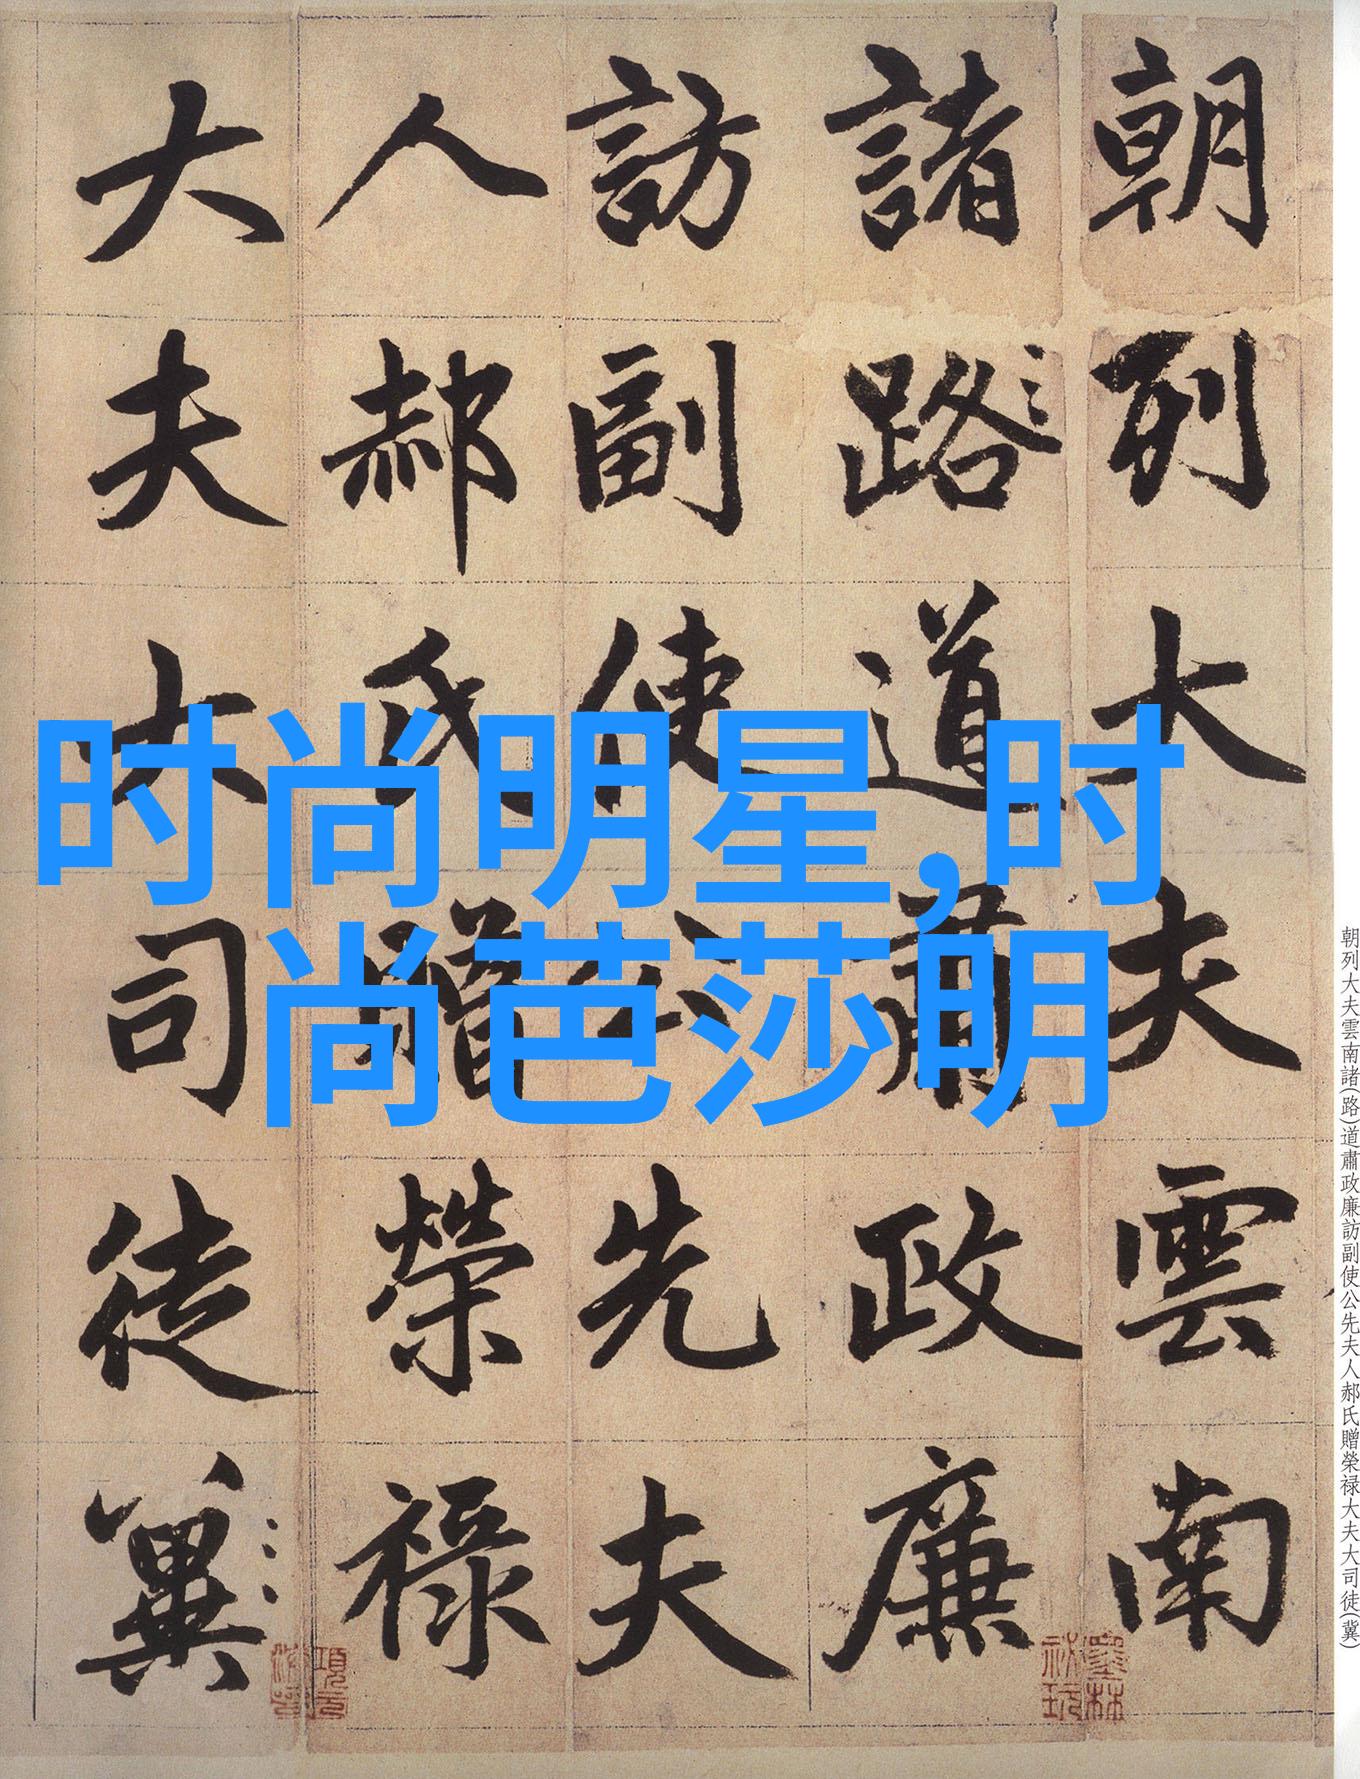 朝列大夫雲南
諸路道肅政廉
訪副使公先夫
人郝氏贈榮禄
大夫大司徒冀
时尚明星,时
尚芭莎明
朝列大夫雲南諸(路)道肅政廉訪副使公先夫人郝氏贈榮禄大夫大司徒(冀)